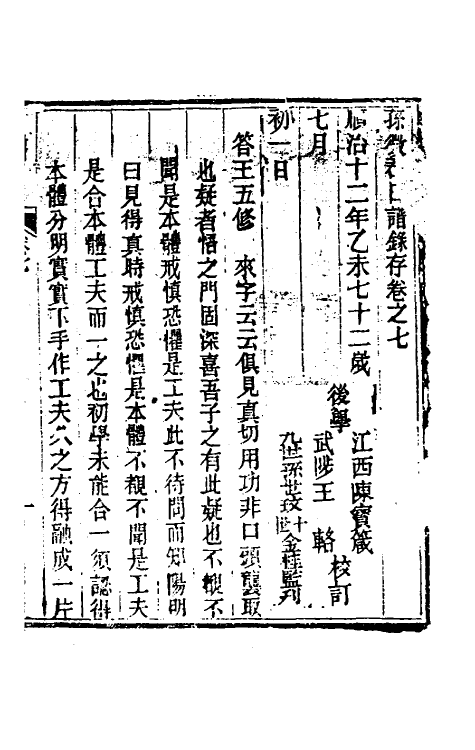 孫徵君日譜錄存卷之七
順治十二年乙未七十二歲
後學
江西陳寶箴
武陟王 輅
校訂
孫世玟
金桂監刋
七月
初一日
答王五修 來字云云俱見真切用功非口頭襲取
也疑者悟之門固深喜吾子之有此疑也不覩不
聞是本體戒慎恐懼是工夫此不待問而知陽明
曰見得真時戒慎恐懼是本體不覩不聞是工夫
是合本體工夫而一之也初學未能合一須認得
本體分明實實下手作工夫久之方得融成一片